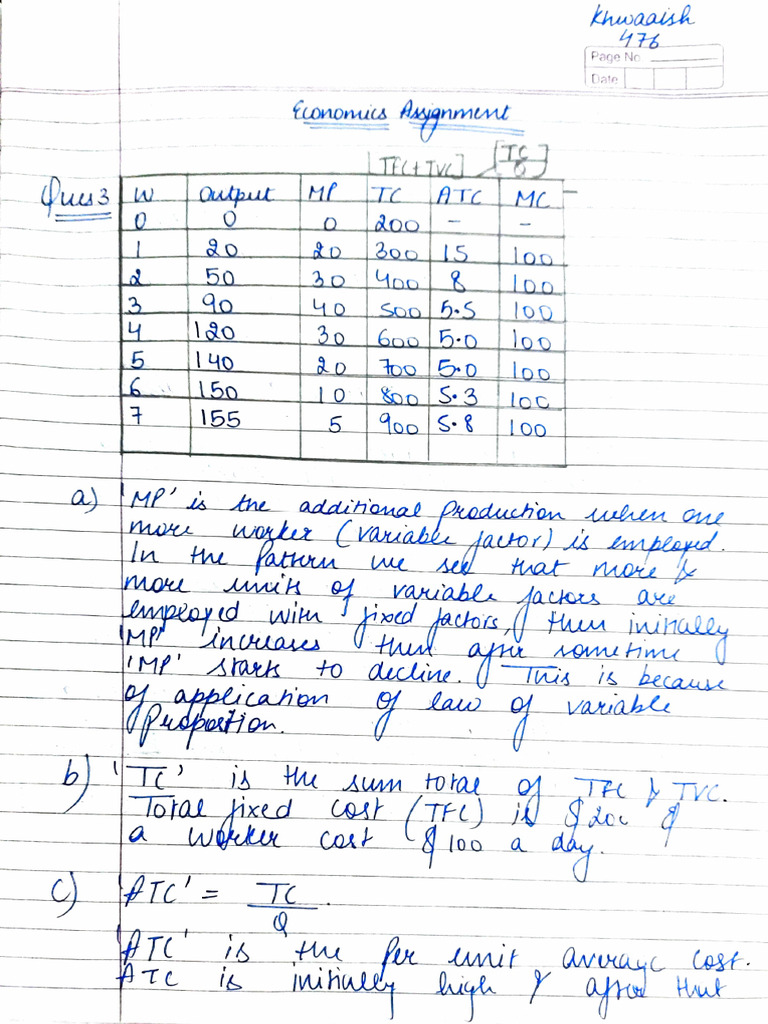 Khwaaish
476
Page No
Date
Economics Assignment
[TFC+TVC] [TC/Q]
Ques 3 W Output MP TC ATC MC
0 0 0 200 - -
1 20 20 300 15 100
2 50 30 400 8 100
3 90 40 500 5.5 100
4 120 30 600 5.0 100
5 140 20 700 5.0 100
6 150 10 800 5.3 100
7 155 5 900 5.8 100
a) 'MP' is the additional production when one
more worker (variable factor) is employed.
In the pattern we see that more &
more units of variable factors are
employed with fixed factors, then initially
'MP' increases then after sometime
'MP' starts to decline. This is because
of application of law of variable
Proportion.
b) 'TC' is the sum total of TFC & TVC.
Total fixed cost (TFC) is $ 200 &
a worker cost $ 100 a day.
c) 'ATC' = TC/Q.
'ATC' is the per unit average cost.
ATC is initially high & after that